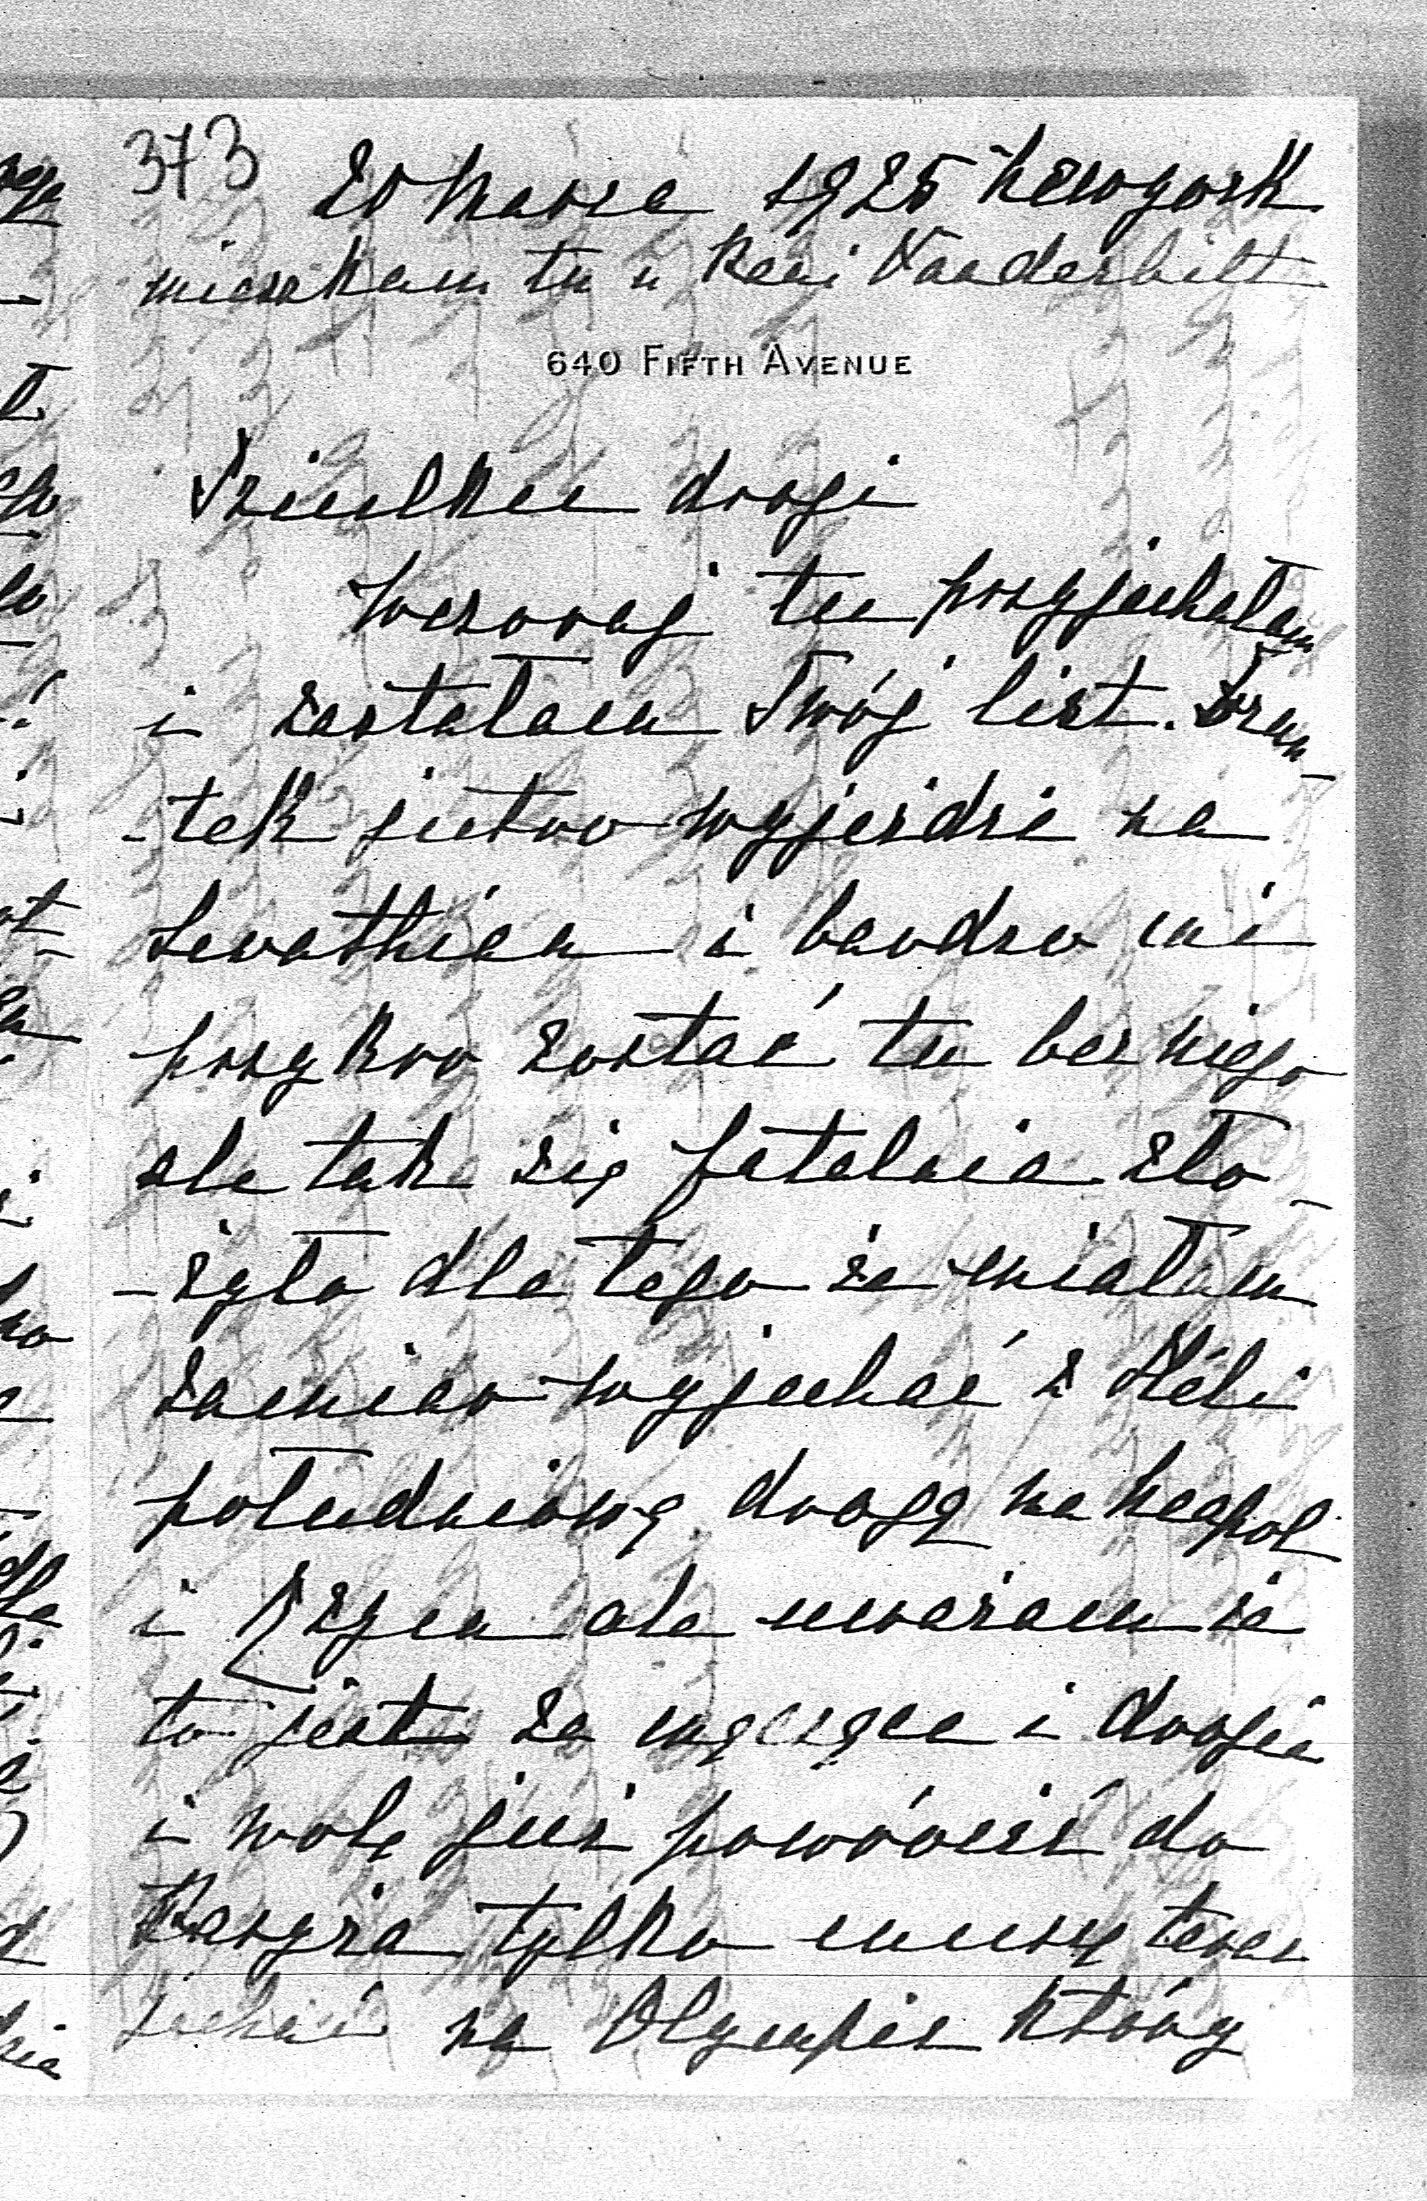 373 20 Marca 1925 Newyork
mieszkam tu u Pani Vanderbilt
640 FIFTH AVENUE
drogi
Wczoraj tu przyjechałam
i zastałam Twój list.
-tek jutro wyjeżdża na
Levathian i bardzo mi
przykro zostać tu bez niego
ale tak się fatalnie zło-
-żyło dla tego że miałam
zamiar wyjechać z Héli
południową drogą na Neapol
i Rzym ale uważam że
to jest za męczące i drogie
i wolę już powrócić do
Paryża tylko muszę teraz
jechać na Olympic który